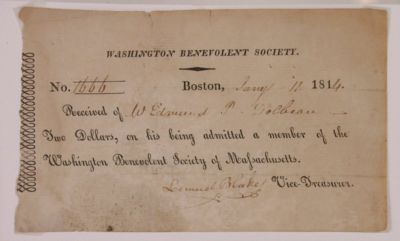 WASHINGTON BENEVOLENT SOCIETY.
No. 1666 Boston, Jany 12 1814.
Received of W Edmund P.
Two Dollars, on his being admitted a member of the
Washington Benevolent Society of Massachusetts.
Lemuel Blake Vice-Treasurer.